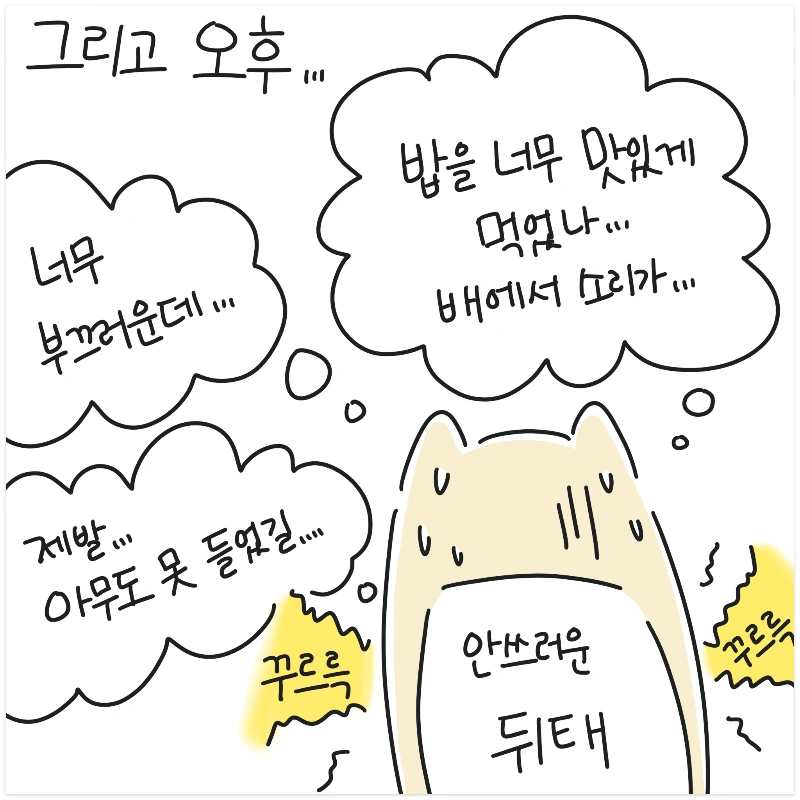 그리고 오후...
밥을 너무 맛있게
먹었나...
배에서 소리가...
너무
부끄러운데...
제발...
아무도 못 들었길....
꾸르륵
꾸르륵
안쓰러운
뒤태